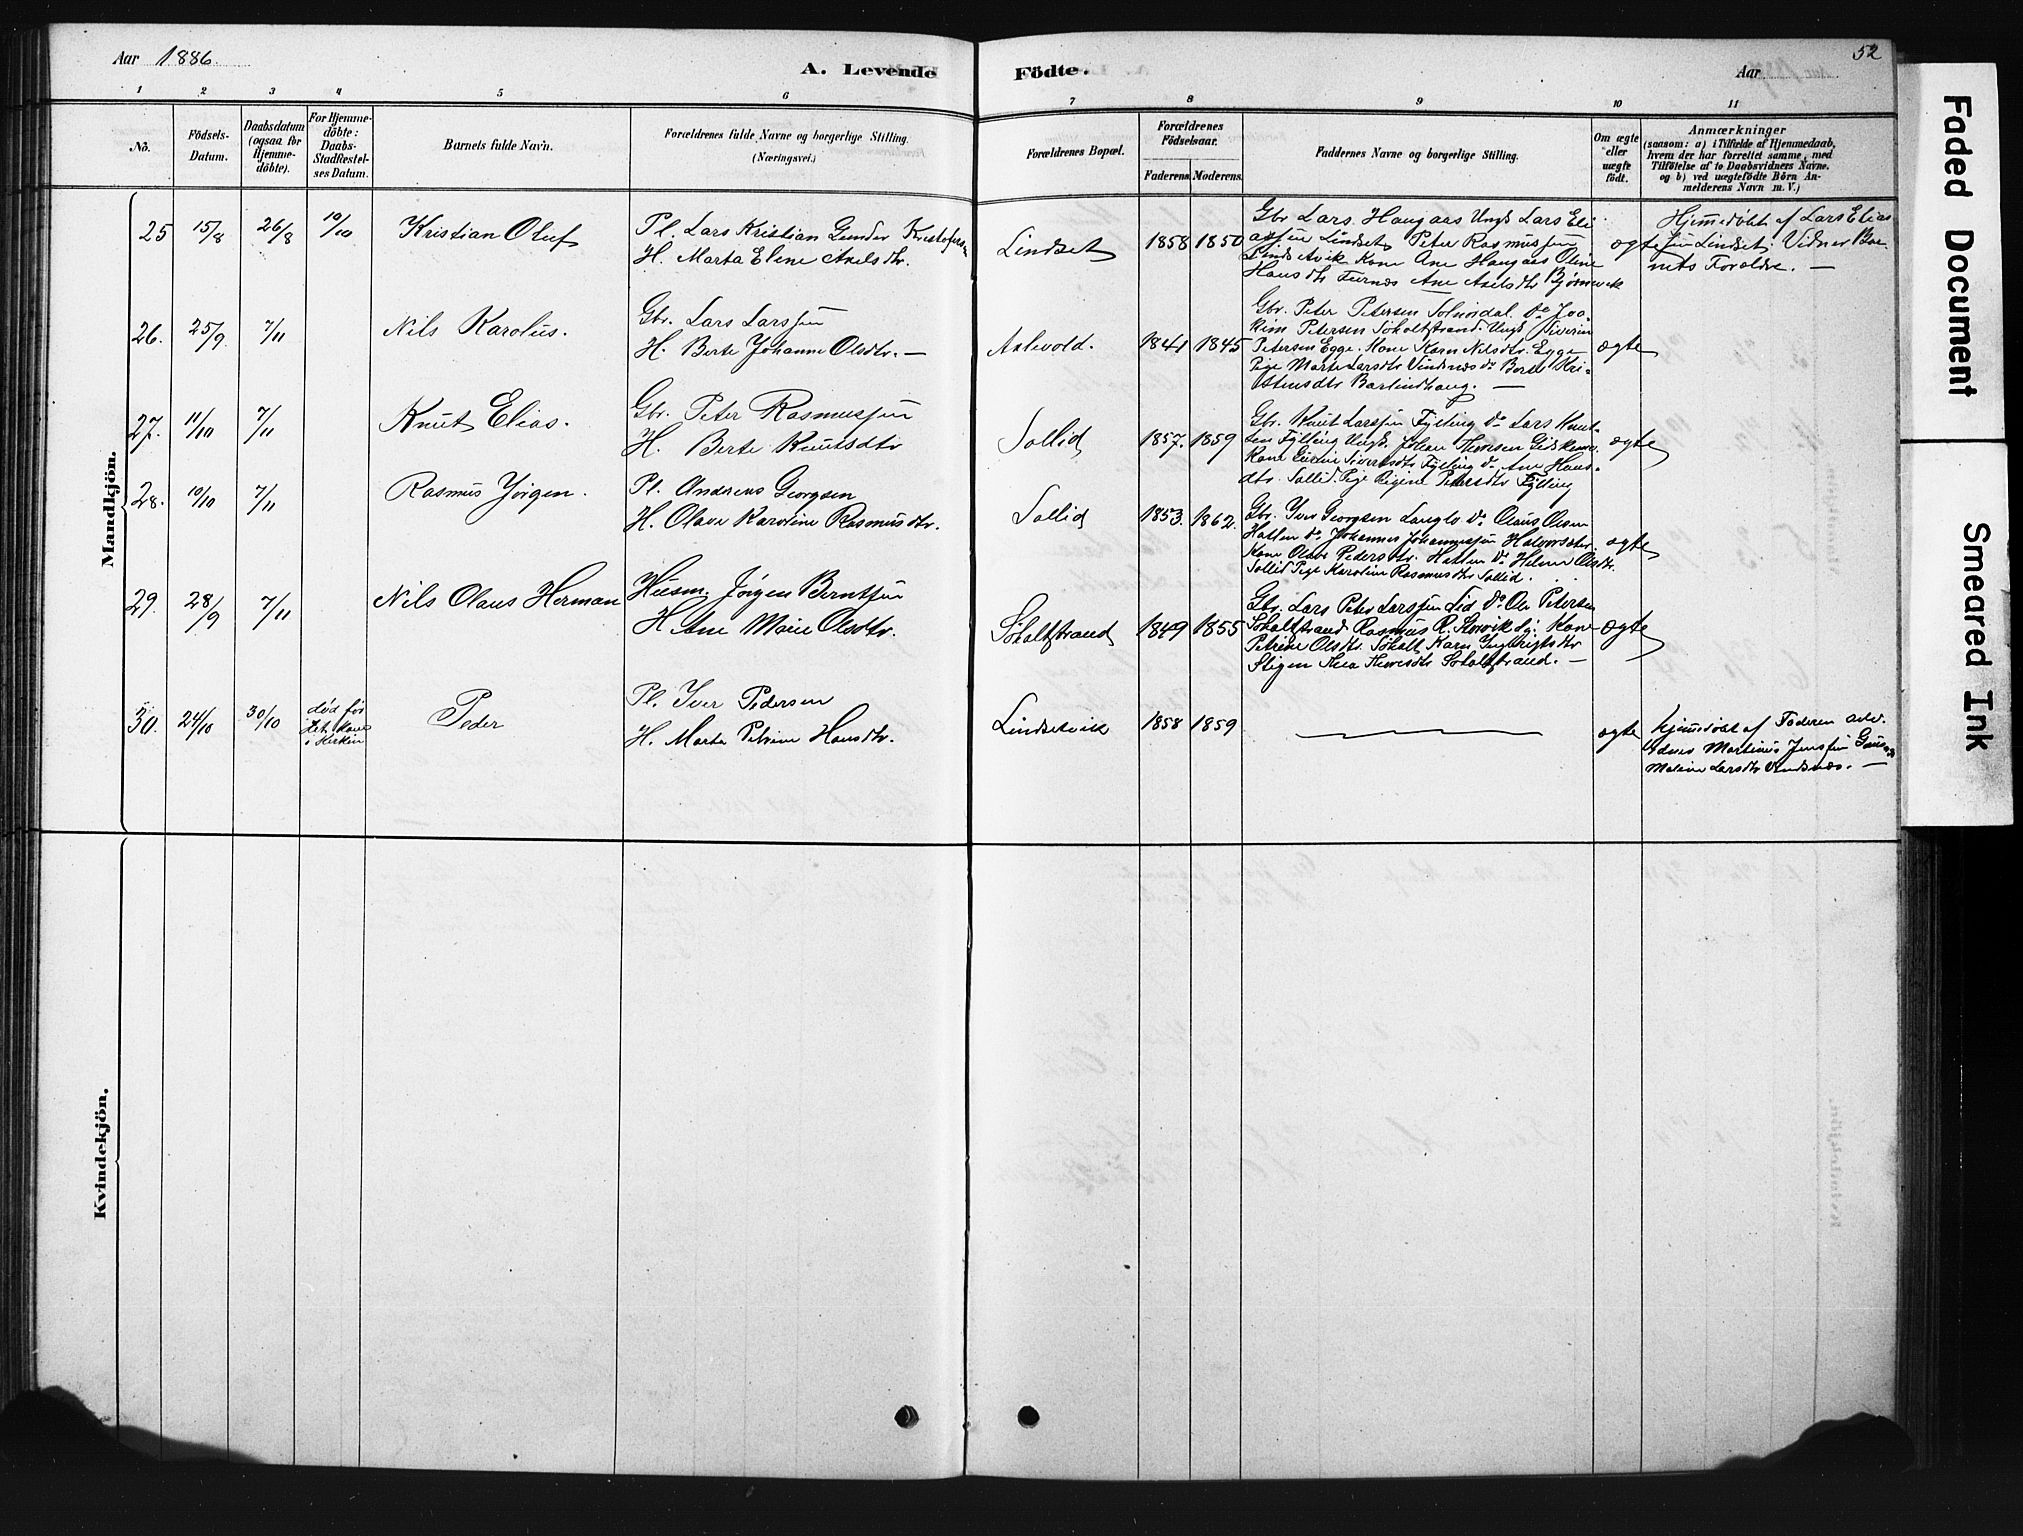 Aar 1886.
A. Levende Födte.
Aar
52
1 2 3 4 5 6 7 8 9 10 11
No.
Födsels-
Datum.
Daabsdatum
(ogsaa for
Hjemme-
döbte).
For Hjemme-
döbte:
Daabs-
Stadfæstel-
ses Datum.
Barnets fulde Navn.
Forældrenes fulde Navne og borgerlige Stilling.
(Næringsvei.)
Forældrenes Bopæl.
Forældrenes
Födselsaar.
Faderens. Moderens.
Faddernes Navne og borgerlige Stilling.
Om ægte
eller
uægte
födt.
Anmærkninger
(saasom: a) i Tilfælde af Hjemmedaab,
hvem der har forrettet samme, med
Tilföielse af to Daabsvidners Navne,
og b) ved uægtefödte Börn An-
melderens Navn m. V.)
Mandkjön.
25 15/8 26/8 10/10 Kristian Oluf
Pl. Lars Kristian Gunder Kristofersen
H. Marta Elene Axelsdtr.
Lindset 1858 1850
Gbr Lars Haugaas Ungk Lars Eli
assen Lindset Peter Rasmussen
Lindsetvik Kone Ane Haugaas Oline
Hansdtr Furnæs Ane Axelsdtr Bjørnevik
ægte
Hjemmedøbt af Lars Elias
sen Lindset. Vidner Bar
nets Forældre. —
26. 25/9 7/11 Nils Karolus.
Gbr. Lars Larssen
H. Berte Johanne Olsdtr. —
Aalevold. 1841 1845
Gbr. Peter Petersen Solnørdal. Do Joa-
kim Petersen Søholtstrand. Ungk Siverin
Petersen Egge. Kone Karn Nilsdtr. Egge
Pige Marte Larsdtr Vindsnæs do Berte Kri-
stensdtr Barlindhaug. —
ægte
27. 11/10 7/11 Knut Elias.
Gbr. Peter Rasmussen
H. Berte Knutsdtr
Sollid 1857. 1859
Gbr. Knut Larssen Fylling Do Lars Knut-
sen Fylling Ungk. Johan Thoresen
Kone Sivertsdtr Fylling Do Ane Hans-
dtr. Sollid. Pige Regine Petersdtr Fylling
ægte
28. 10/10 7/11 Rasmus Jørgen.
Pl. Andreas Georgsen
H. Olave Karoline Rasmusdtr.
Sollid 1853. 1862.
Gbr. Iver Georgsen Langlo Do Olaus Olsen
Hatlen Do Johannes Johannessen
Kone Olave Pedersdtr. Hatlen Do Helene Olsdtr.
Sollid Pige Karoline Rasmusdtr Sollid.
ægte
29. 28/9 7/11 Nils Olaus Herman
Husm. Jørgen Berntsen
H Ane Marie Olsdtr.
Søholtstrand 1849 1855
Gbr. Lars Peter Larssen Lid Do Ole Petersen
Søholtstrand Rasmus R. Storvik Kone
Petrine Olsdtr. Søholt Karn Ingebrigtsdtr
Stigen Thea Thoresdtr Søholtstrand. —
ægte
30. 24/10 30/10
død før
det kom
i Kirken
Peder
Pl. Iver Pedersen
H. Marte Petrine Hansdtr.
Lindsetvik 1858 1859
ægte
Hjemmedøbt af Faderen
Vidner Martinus Jenssen
Malene Larsdtr Vindsnæs. —
Kvindekjön.
Faded Document
Smeared Ink